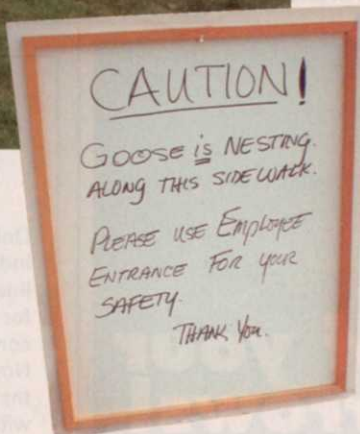 CAUTION!
GOOSE is NESTING.
ALONG THIS SIDEWALK.
PLEASE USE EMPLOYEE
ENTRANCE FOR YOUR
SAFETY.
THANK YOU.